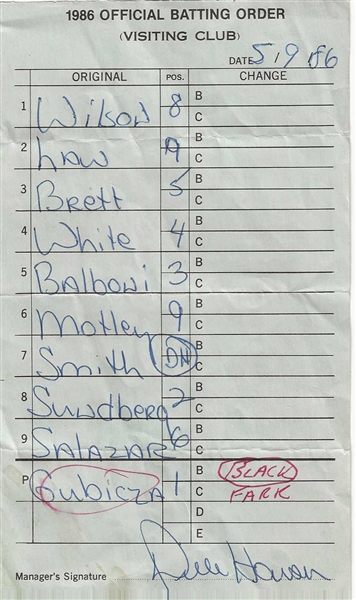 1986 OFFICIAL BATTING ORDER
(VISITING CLUB)
DATE 5/9/86
ORIGINAL POS. CHANGE
1 Wilson 8 B
C
2 Law B
C
3 Brett 5 B
C
4 White 4 B
C
5 Balboni 3 B
C
6 Motley 9 B
C
7 Smith DH B
C
8 Sundberg 2 B
C
9 SALAZAR 6 B
C
P Gubicza 1 B BLACK
C FARR
D
E
Manager's Signature